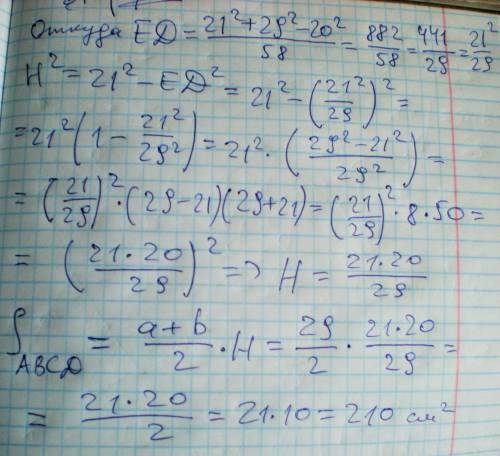 Откуда ED = (21² + 29² − 20²)/58 = 882/58 = 441/29 = 21²/29
H² = 21² − ED² = 21² − (21²/29)² =
= 21² (1 − 21²/29²) = 21² · ((29² − 21²)/29²) =
= (21/29)² · (29 − 21)(29 + 21) = (21/29)² · 8 · 50 =
= (21 · 20/29)² => H = 21 · 20/29
S ABCD = (a + b)/2 · H = 29/2 · 21 · 20/29 =
= 21 · 20/2 = 21 · 10 = 210 см²